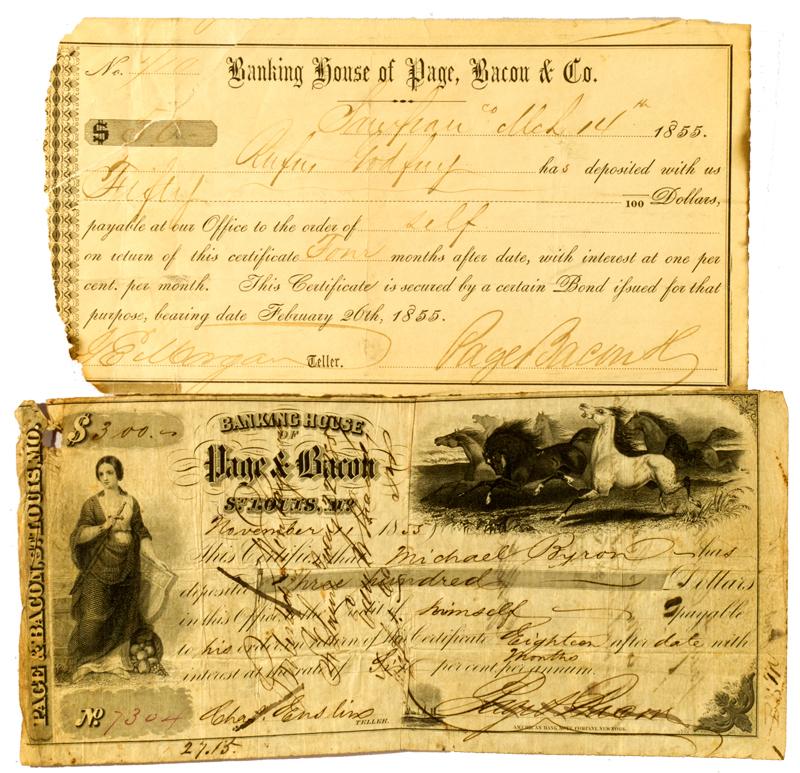 No. 410 Banking House of Page, Bacon & Co.
$ 50 San Fran co Mch 14th 1855.
Rufus Godfrey has deposited with us
Fifty 100 Dollars,
payable at our Office to the order of self
on return of this certificate Four months after date, with interest at one per
cent. per month. This Certificate is secured by a certain Bond issued for that
purpose, bearing date February 26th, 1855.
Teller. Page Bacon & Co
PAGE & BACON, ST. LOUIS, MO.
$ 300.
BANKING HOUSE
OF
Page & Bacon
ST. LOUIS, MO.
November 1 1855
This Certifies that Michael Byron has
deposited Three hundred Dollars
in this Office to the Credit of himself payable
to his order on return of this Certificate Eighteen months after date with
interest at the rate of Six per cent per annum.
No 7304 Chas. Enslin TELLER. Page & Bacon
AMERICAN BANK NOTE COMPANY, NEW YORK.
27.15